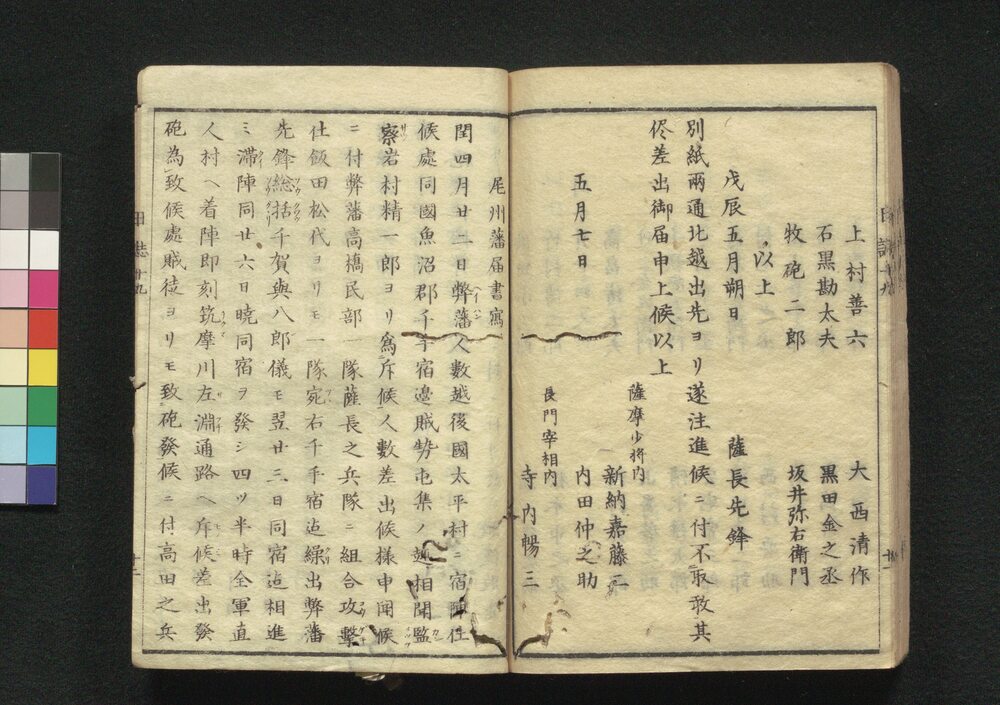 上村善六　　大西清作
石黒勘太夫　　黒田金之丞
牧砲二郎　　坂井弥右衛門
以上
戊辰五月朔日　　薩長先鋒
別紙兩通北越出先ヨリ遂注進候ニ付不取敢其
侭差出御届申上候以上
薩摩少将内
新納嘉藤二
五月七日　　内田仲之助
長門宰相内
寺内暢三
尾州藩届書寫
閏四月廿二日弊藩人數越後國太平村ニ宿陣仕
候處同國魚沼郡千手宿邊賊勢屯集ノ趣相聞監
察岩村精一郎ヨリ為斥候人數差出候様申聞候
ニ付弊藩高橋民部一隊薩長之兵隊ニ組合攻撃
仕飯田松代ヨリモ一隊宛右千手宿迠繰出弊藩
先鋒総括千賀與八郎儀モ翌廿三日同宿迠相進
ミ滞陣同廿六日曉同宿ヲ發シ四ツ半時全軍直
人村ヘ着陣即刻筑摩川左淵通路ヘ斥候差出發
砲為致候處賊徒ヨリモ致砲發候ニ付高田之兵
日誌十九